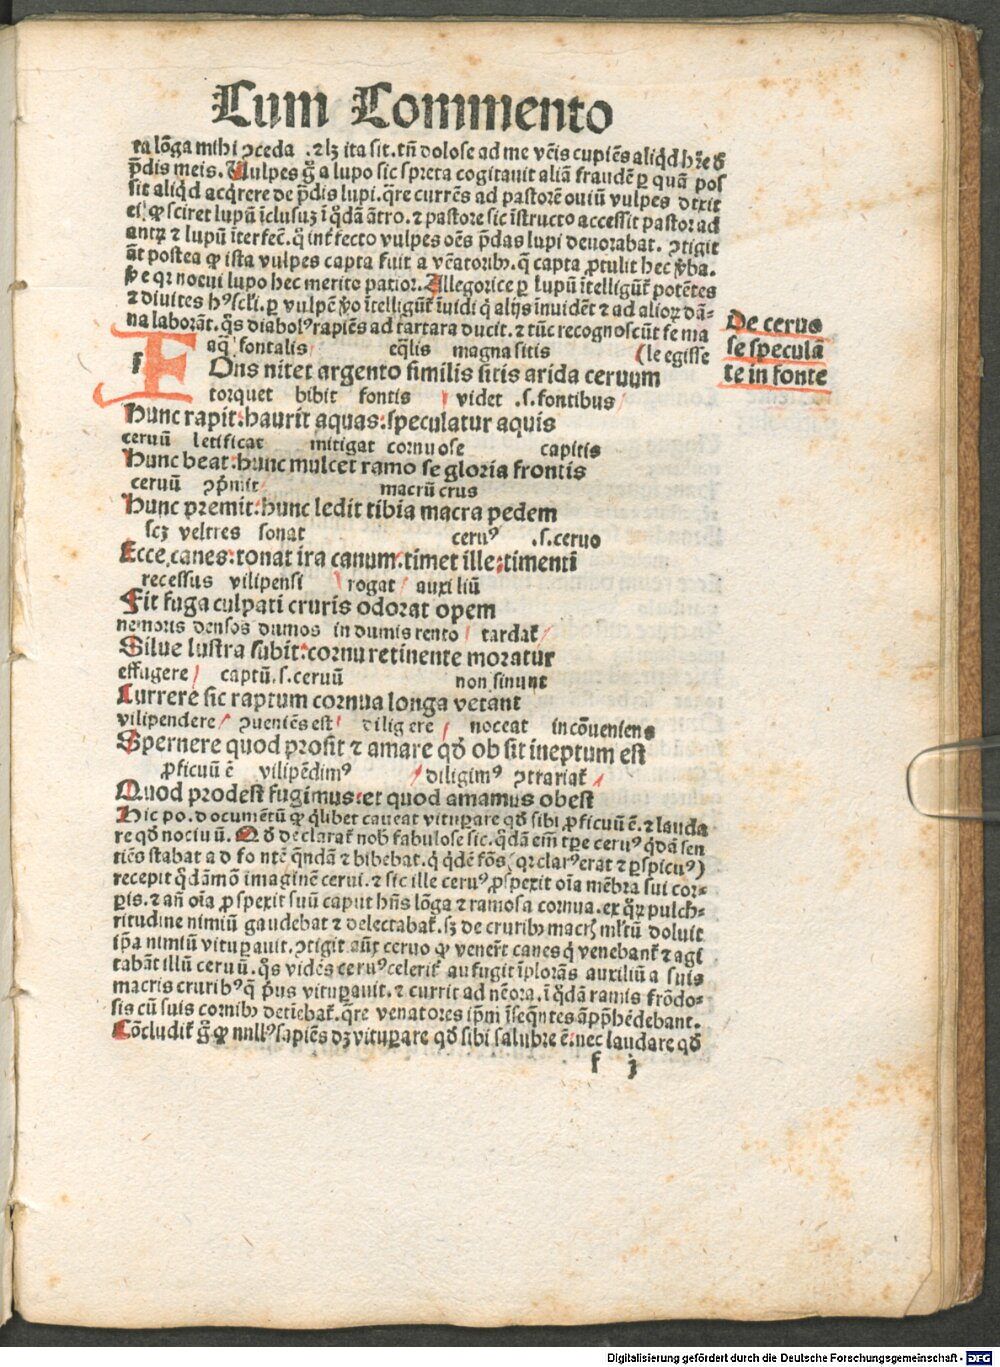 Cum Commento
ta lõga mihi ꝯceda .⁊ lꝫ ita sit. tñ dolose ad me vẽis cupiẽs aliqͥd hr̃e ð
p̃dis meis. Uulpes g̃ a lupo sic spreta cogitauit aliã fraudẽ ꝑ quã pos
sit aliqͥd acqͥrere de p̃dis lupi. qͣre currẽs ad pastorẽ ouiũ vulpes dixit
ei ꝙ sciret lupũ ĩclusuꝫ ĩ qͦdã ãtro. ⁊ pastore sic ĩstructo accessit pastor ad
antꝝ ⁊ lupũ ĩterfec̃. qͦ int̃fecto vulpes oẽs p̃das lupi deuorabat. ꝯtigit
ãt postea ꝙ ista vulpes capta fuit a vẽatoribꝰ. q̃ capta ꝓtulit hec v̓ba.
qꝛ nocui lupo hec merito patior. Allegorice ꝑ lupũ ĩtelligũt᷑ potẽtes
⁊ diuites hꝰ scl̓i. ꝑ vulpẽ v̓o ĩtelligũt᷑ ĩuidi qͥ alijs inuidẽt ⁊ ad alioꝝ dã-
na laborãt. qͦs diabolꝰ rapiẽs ad tartara ducit. ⁊ tũc recognoscũt se ma
De ceruo
se speculã
te in fonte
aqͣ fontalis eq̃lis magna sitis (le egisse
f
FOns nitet argento similis sitis arida ceruum
torquet bibit fontis videt .s. fontibus
Hunc rapit: haurit aquas: speculatur aquis
ceruũ letificat mitigat cornuose capitis
Hunc beat: hunc mulcet ramo se gloria frontis
ceruũ ꝯp̃mit macrũ crus
Hunc premit: hunc ledit tibia macra pedem
scꝫ veltres sonat ceruꝰ .s. ceruo
Ecce canes: tonat ira canum. timet ille: timenti
recessus vilipensi rogat auxiliũ
Fit fuga culpati cruris odorat opem
nemoris densos dumos in dumis rento tardat᷑
Silue lustra subit: cornu retinente moratur
effugere captũ .s. ceruũ non sinunt
Currere sic raptum cornua longa vetant
vilipendere ꝯueniẽs est diligere noceat incõueniens
Spernere quod prosit ⁊ amare qð ob sit ineptum est
ꝓficuũ ẽ vilipẽdimꝰ diligimꝰ ꝯtrariat᷑
Quod prodest fugimus: et quod amamus obest
Hic po. documẽtũ ꝙ qͥlibet caueat vituꝑare qð sibi ꝓficuũ ẽ. ⁊ lauda
re qð nociuũ. Qð declarat᷑ nob̃ fabulose sic. qͦdã em̃ tꝑe ceruꝰ qͥdã sen
tiẽs stabat ad fontẽ quẽndã ⁊ bibebat. qͥ qͥdẽ fõs (qꝛ clarꝰ erat ⁊ ꝑspicuꝰ)
recepit qͦdãmõ imaginẽ cerui. ⁊ sic ille ceruꝰ ꝓspexit oĩa mẽbra sui cor-
ꝑis. ⁊ añ oĩa ꝓspexit suũ caput hñs lõga ⁊ ramosa cornua. ex qͦꝝ pulch-
ritudine nimiũ gaudebat ⁊ delectabat᷑. sꝫ de cruribꝰ macrꝭ ml̓tũ doluit
ip̃a nimiũ vituꝑauit. ꝯtigit aũt ceruo ꝙ vener̃t canes qͥ venebant᷑ ⁊ agi
tabãt illũ ceruũ. qͦs vidẽs ceruꝰ celerit᷑ aufugit ĩplorãs auxiliũ a suis
macris cruribꝰ q̃ p̃us vituꝑauit. ⁊ currit ad nẽora. ĩ qͦdã ramis frõdo-
sis cũ suis cornibꝰ detiẽbat᷑. qͣre venatores ip̃m ĩseq̃ntes app̃hẽdebant.
Cõcludit᷑ g̃ ꝙ nullꝰ sapiẽs dꝫ vituꝑare qð sibi salubre ẽ. nec laudare qð
f j
Digitalisierung gefördert durch die Deutsche Forschungsgemeinschaft - DFG